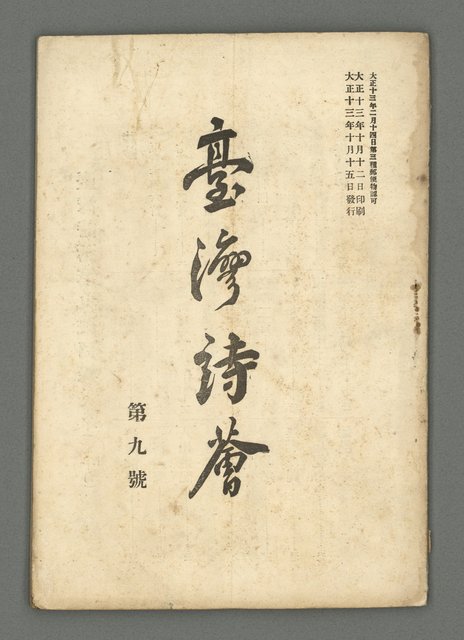 大正十三年二月十四日第三種郵便物認可
大正十三年十月十二日印刷
大正十三年十月十五日發行
臺灣詩薈
第九號